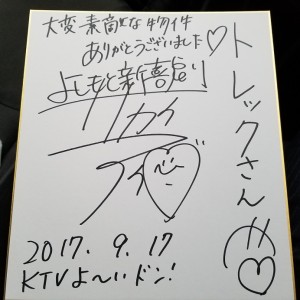 大変素敵な物件
ありがとうございました♡
よしもと新喜劇
トレックさんへ♡
2017.9.17
KTVよ〜いドン!